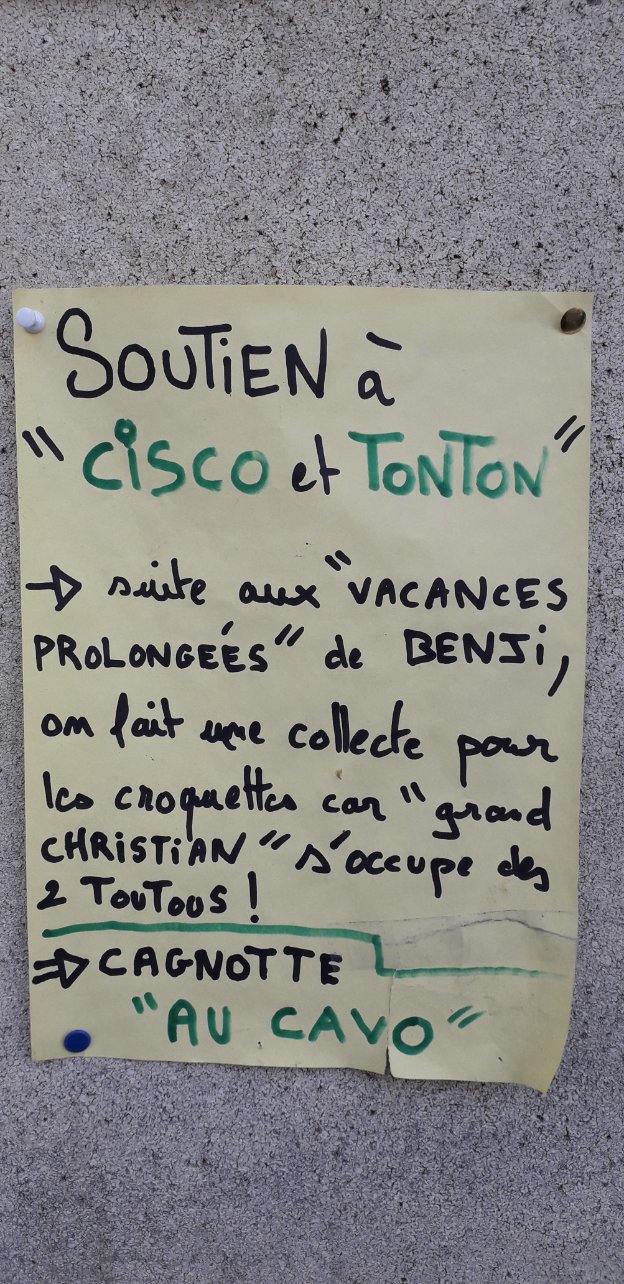 SOUTIEN à
"CISCO et TONTON"
→ suite aux "VACANCES
PROLONGÉES" de BENJI,
on fait une collecte pour
les croquettes car "grand
CHRISTIAN" s'occupe des
2 TOUTOUS !
⇒ CAGNOTTE
"AU CAVO"